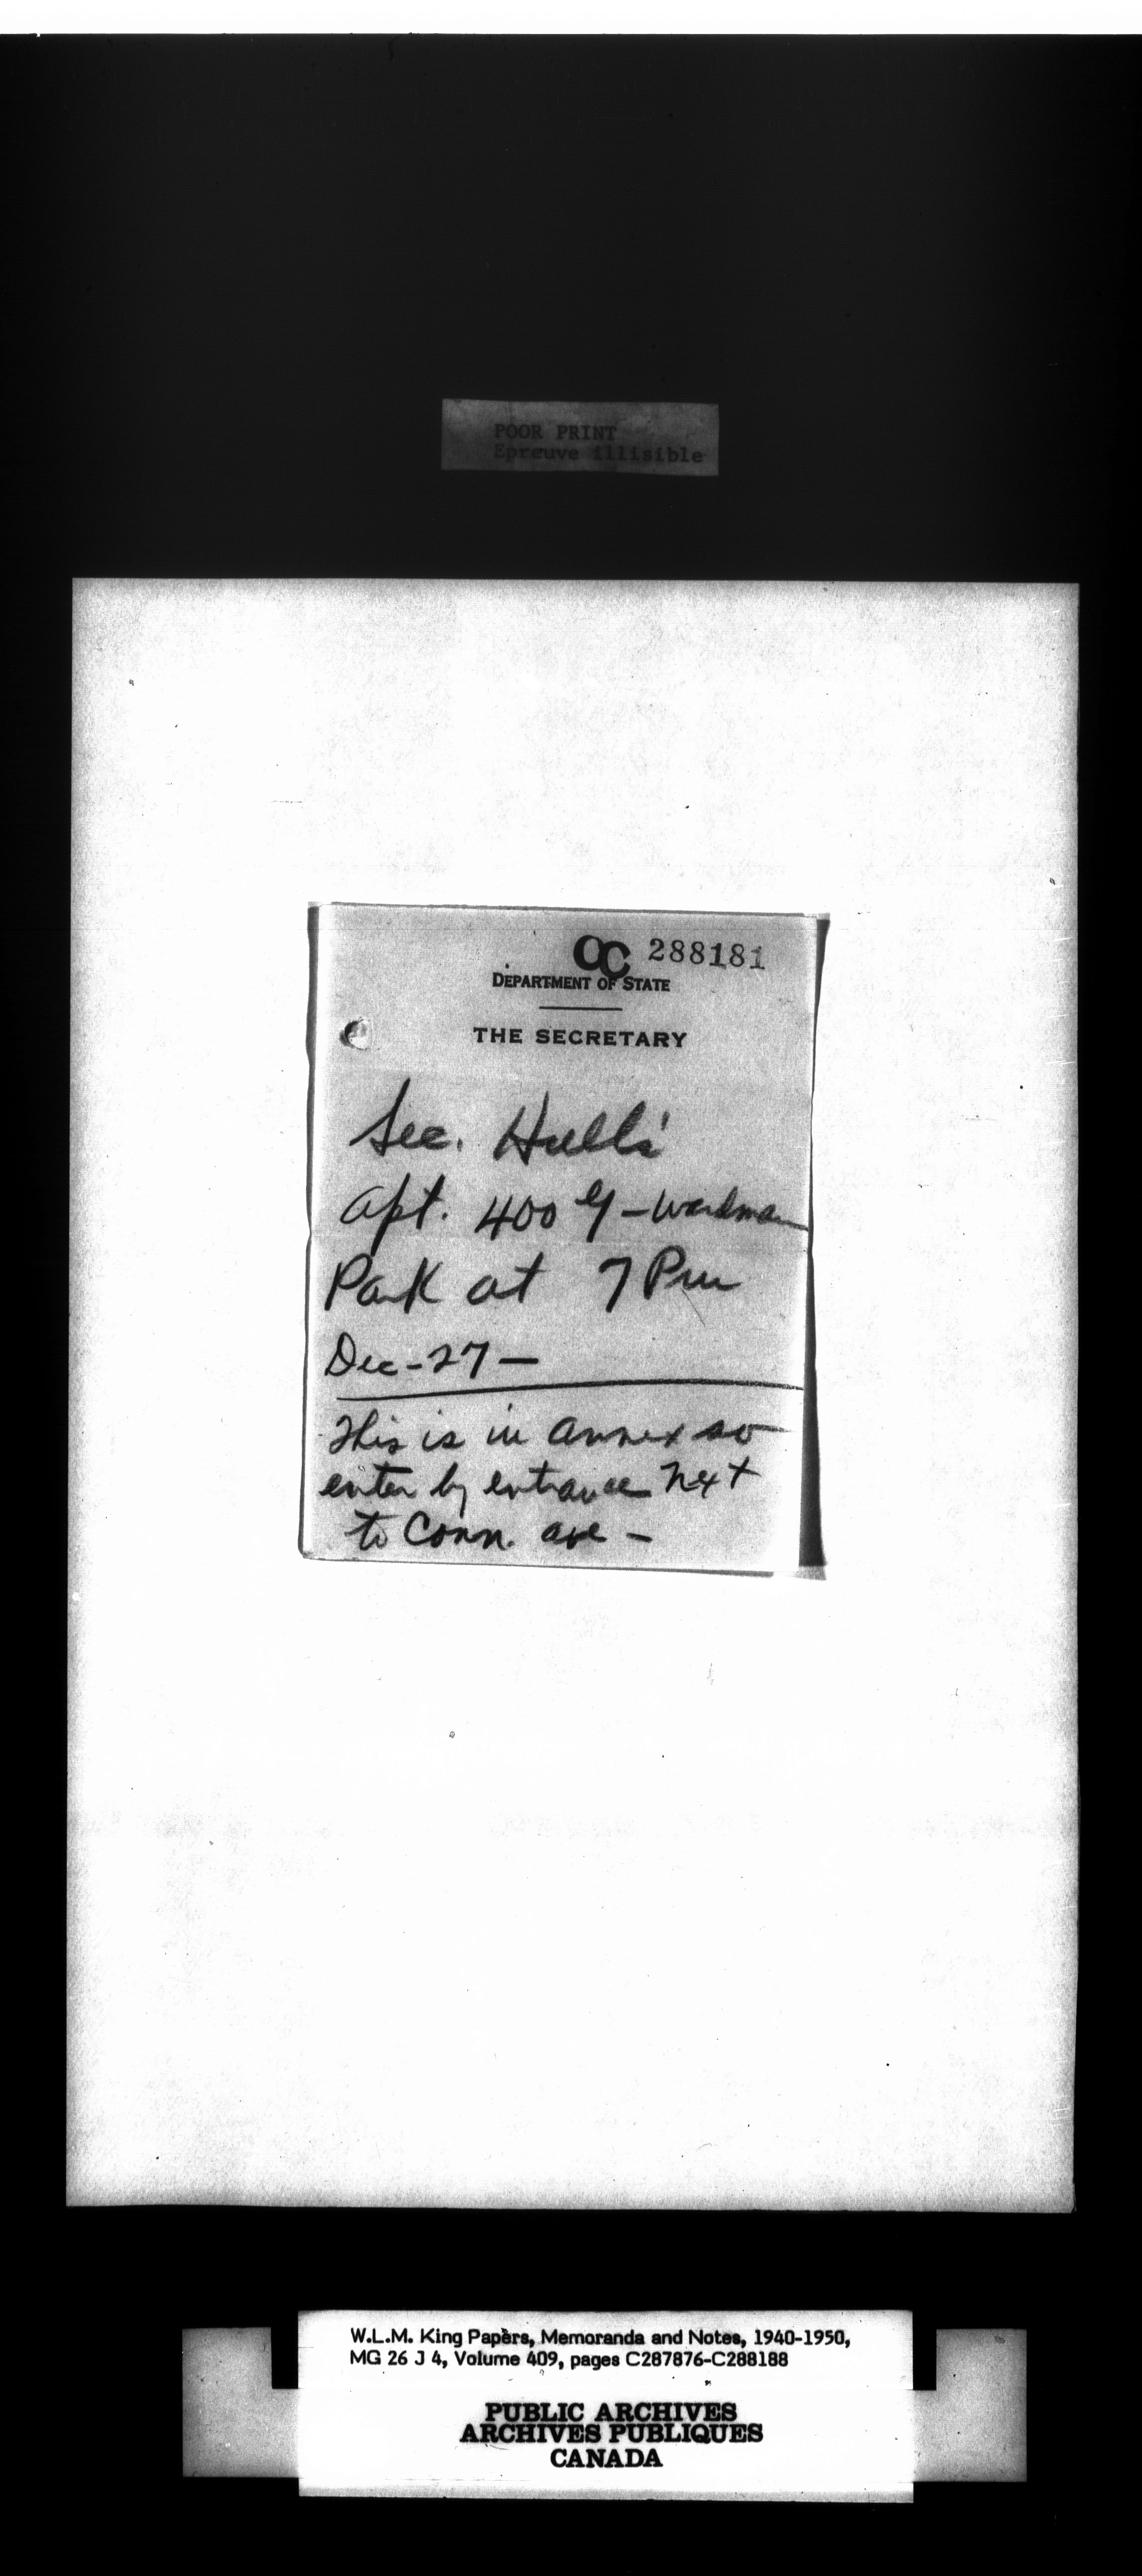 POOR PRINT
Epreuve illisible
C 288181
DEPARTMENT OF STATE
THE SECRETARY
Sec. Hull's
apt. 400 - Wardman
Park at 7 Pm
Dec-27-
This is in annex so
enter by entrance next
to Conn. ave -
W.L.M. King Papers, Memoranda and Notes, 1940-1950,
MG 26 J 4, Volume 409, pages C287876-C288188
PUBLIC ARCHIVES
ARCHIVES PUBLIQUES
CANADA